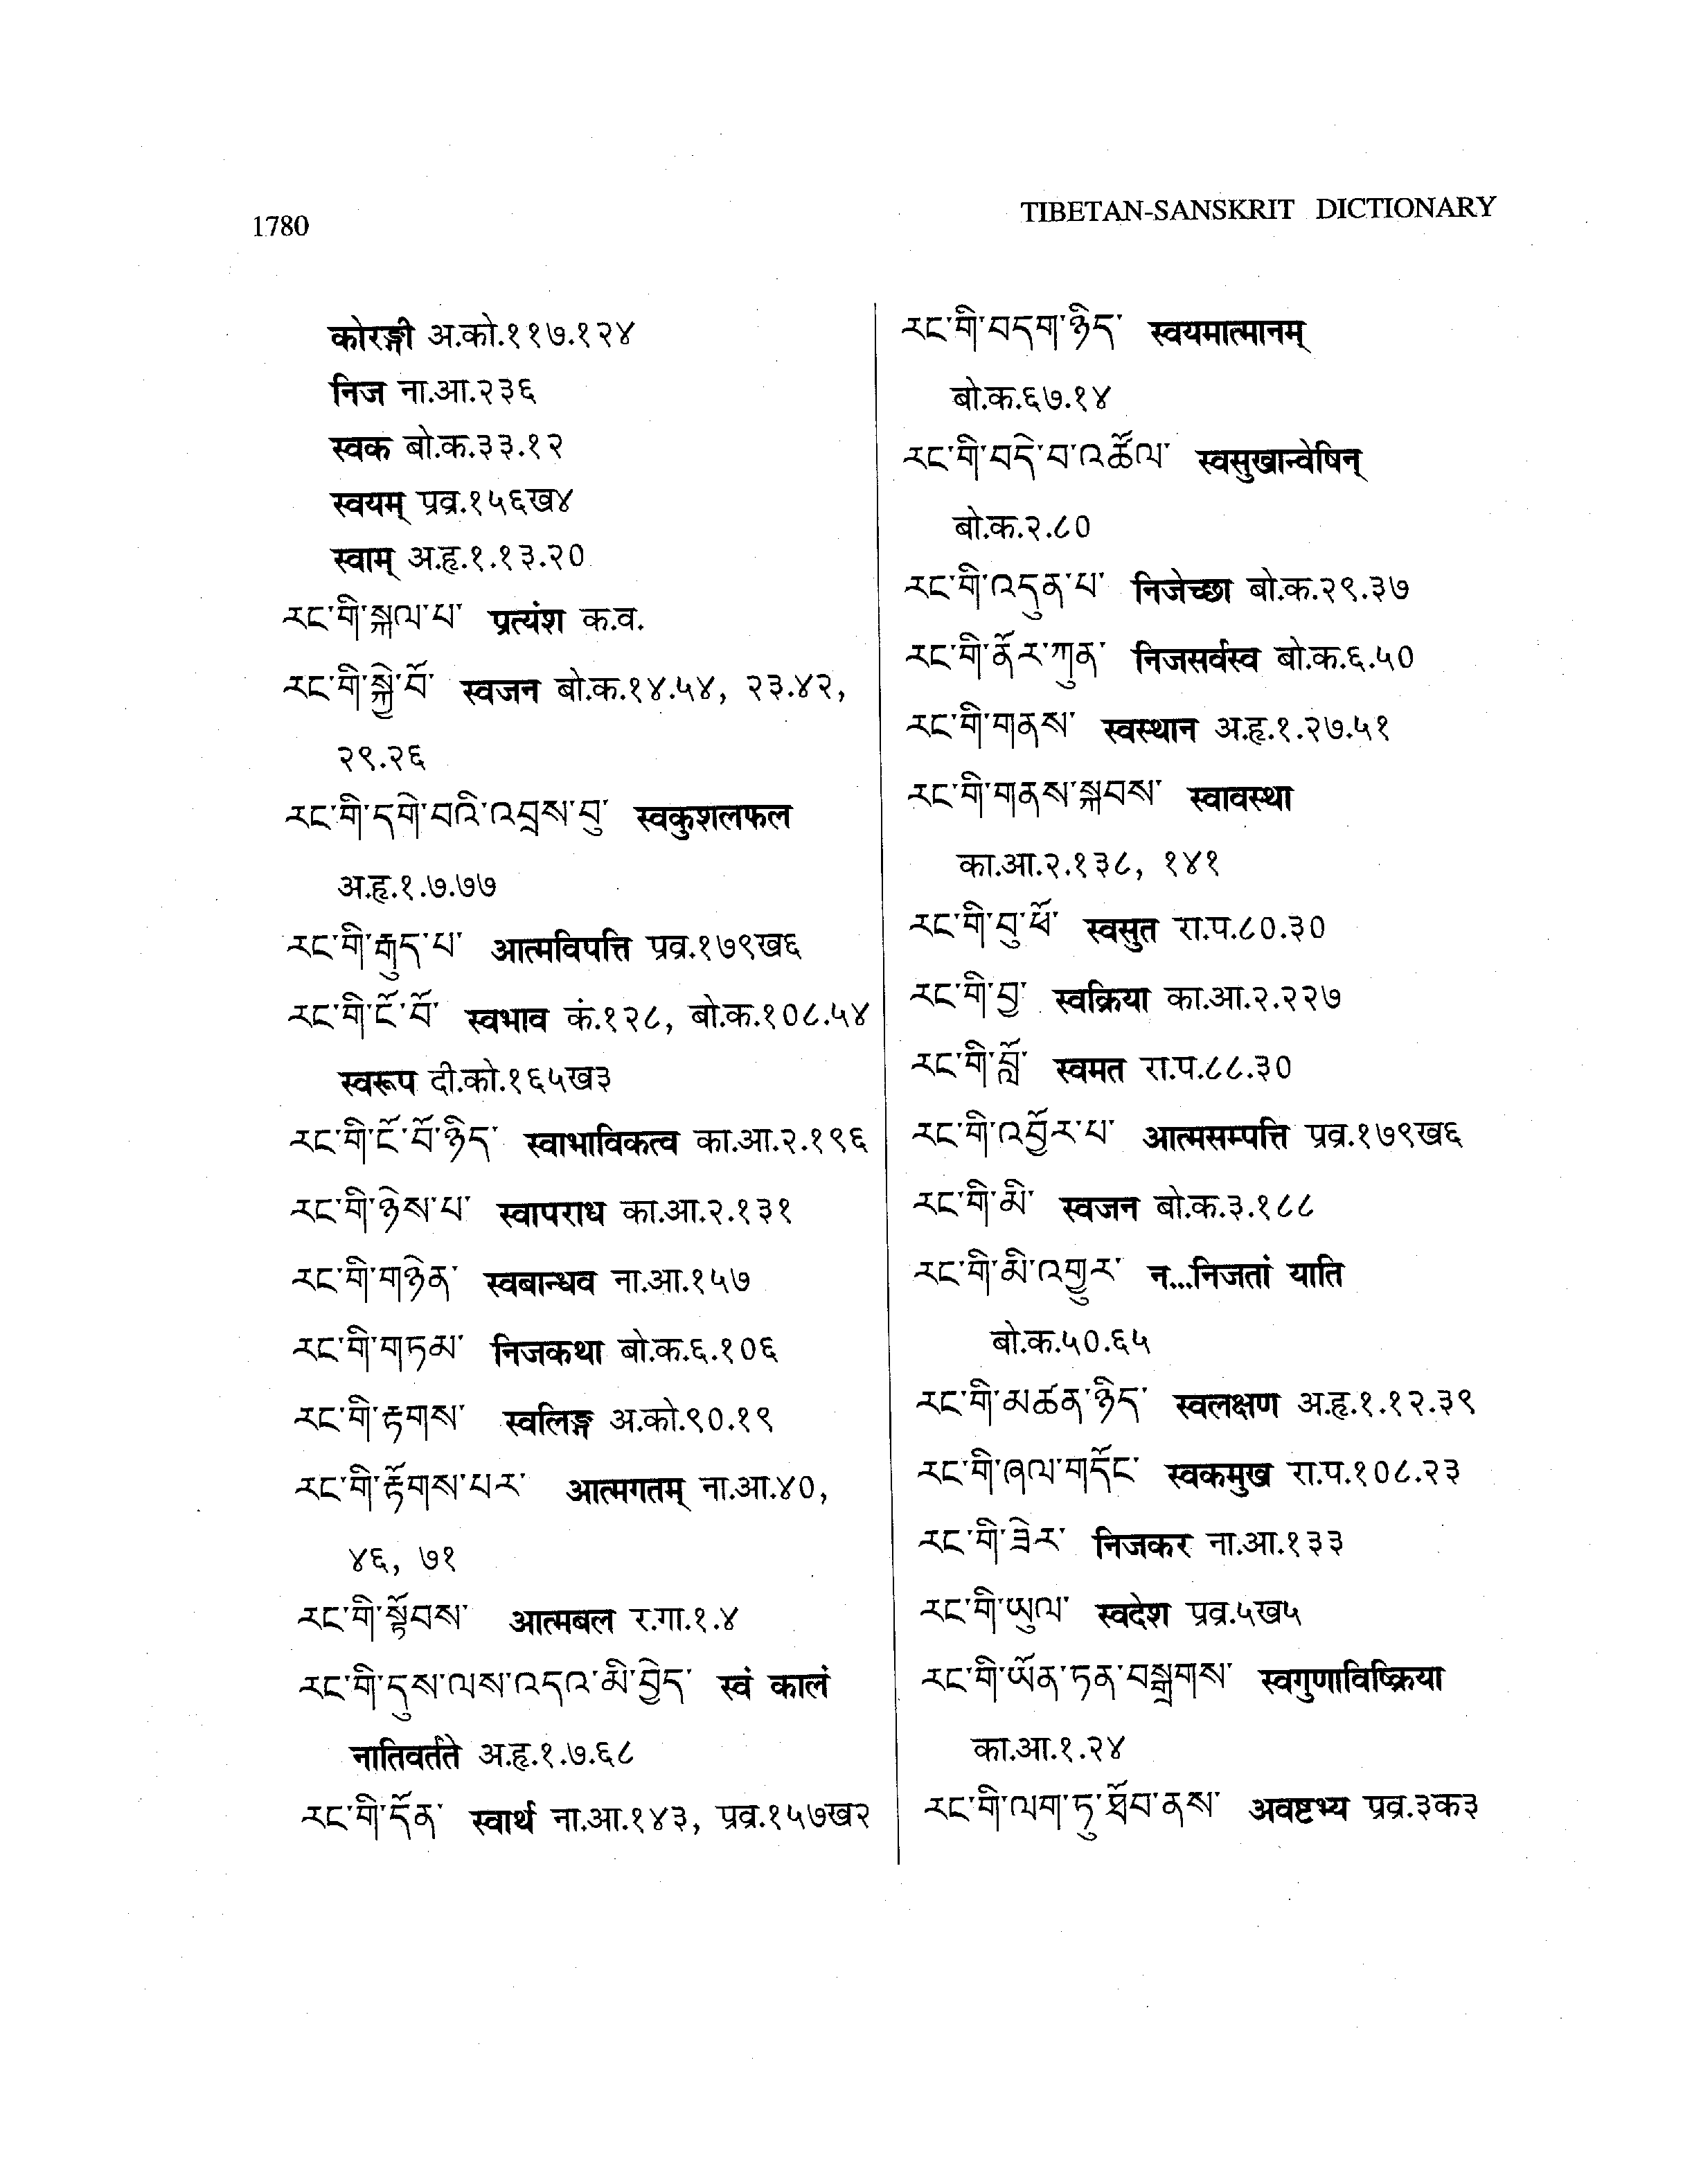 1780
TIBETAN-SANSKRIT DICTIONARY
कोरङ्गी अ.को.११७.१२४
निज ना.आ.२३६
स्वक बो.क.३३.१२
स्वयम् प्रव्र.१५६ख४
स्वाम् अ.हृ.१.१३.२०
རང་གི་སྐལ་པ་ प्रत्यंश क.व.
རང་གི་སྐྱེ་བོ་ स्वजन बो.क.१४.५४, २३.४२,
२९.२६
རང་གི་དགེ་བའི་འབྲས་བུ་ स्वकुशलफल
अ.हृ.१.७.७७
རང་གི་རྒུད་པ་ आत्मविपत्ति प्रव्र.१७९ख६
རང་གི་ངོ་བོ་ स्वभाव कं.१२८, बो.क.१०८.५४
स्वरूप दी.को.१६५ख३
རང་གི་ངོ་བོ་ཉིད་ स्वाभाविकत्व का.आ.२.१९६
རང་གི་ཉེས་པ་ स्वापराध का.आ.२.१३१
རང་གི་གཉེན་ स्वबान्धव ना.आ.१५७
རང་གི་གཏམ་ निजकथा बो.क.६.१०६
རང་གི་རྟགས་ स्वलिङ्ग अ.को.९०.१९
རང་གི་རྟོགས་པར་ आत्मगतम् ना.आ.४०,
४६, ७१
རང་གི་སྟོབས་ आत्मबल र.गा.१.४
རང་གི་དུས་ལས་འདའ་མི་བྱེད་ स्वं कालं
नातिवर्तते अ.हृ.१.७.६८
རང་གི་དོན་ स्वार्थ ना.आ.१४३, प्रव्र.१५७ख२
རང་གི་བདག་ཉིད་ स्वयमात्मानम्
बो.क.६७.१४
རང་གི་བདེ་བ་འཚོལ་ स्वसुखान्वेषिन्
बो.क.२.८०
རང་གི་འདུན་པ་ निजेच्छा बो.क.२९.३७
རང་གི་ནོར་ཀུན་ निजसर्वस्व बो.क.६.५०
རང་གི་གནས་ स्वस्थान अ.हृ.१.२७.५१
རང་གི་གནས་སྐབས་ स्वावस्था
का.आ.२.१३८, १४१
རང་གི་བུ་ཕོ་ स्वसुत रा.प.८०.३०
རང་གི་བྱ་ स्वक्रिया का.आ.२.२२७
རང་གི་བློ་ स्वमत रा.प.८८.३०
རང་གི་འབྱོར་པ་ आत्मसम्पत्ति प्रव्र.१७९ख६
རང་གི་མི་ स्वजन बो.क.३.१८८
རང་གི་མི་འགྱུར་ न...निजतां याति
बो.क.५०.६५
རང་གི་མཚན་ཉིད་ स्वलक्षण अ.हृ.१.१२.३९
རང་གི་ཞལ་གདོང་ स्वकमुख रा.प.१०८.२३
རང་གི་ཟེར་ निजकर ना.आ.१३३
རང་གི་ཡུལ་ स्वदेश प्रव्र.५ख५
རང་གི་ཡོན་ཏན་བསྒྲགས་ स्वगुणाविष्क्रिया
का.आ.१.२४
རང་གི་ལག་ཏུ་ཐོབ་ནས་ अवष्टभ्य प्रव्र.३क३